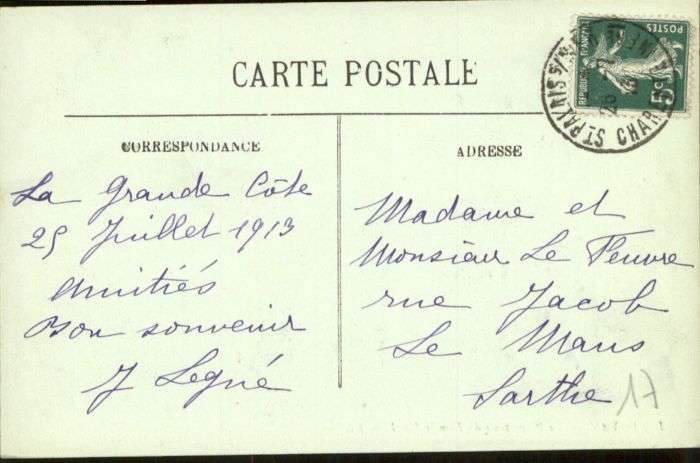 CARTE POSTALE
CORRESPONDANCE
La Grande Côte
25 Juillet 1913
Amitiés
Bon souvenir
J Legué
ADRESSE
Madame et
Monsieur Le Feuvre
rue Jacob
Le Mans
Sarthe
17
POSTES
REPUBLIQUE FRANÇAISE
5c
ST PALAIS S/
CHAR